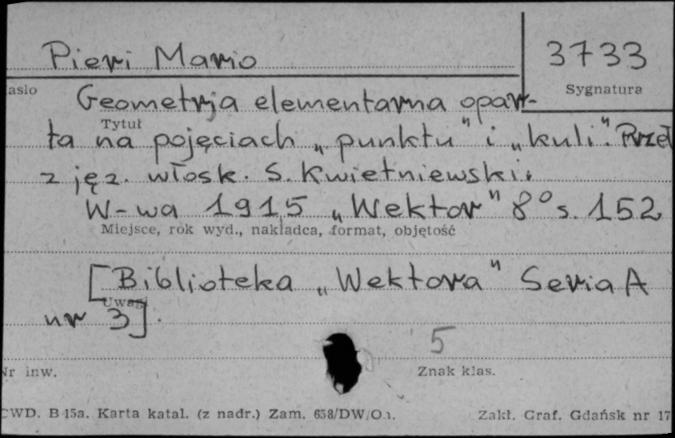 Pieri Mario 3733
asło Sygnatura
Geometrja elementarna opar-
Tytuł
ta na pojęciach „punktu" i „kuli". Przeł
z jęz. włosk. S. Kwietniewski.
W-wa 1915 „Wektor" 8° s. 152
Miejsce, rok wyd., nakładca, format, objętość
[Biblioteka „Wektora" Seria A
Uwagi
nr 3].
5
Nr inw. Znak klas.
CWD. B-15a. Karta katal. (z nadr.) Zam. 658/DW/O. Zakł. Graf. Gdańsk nr 17